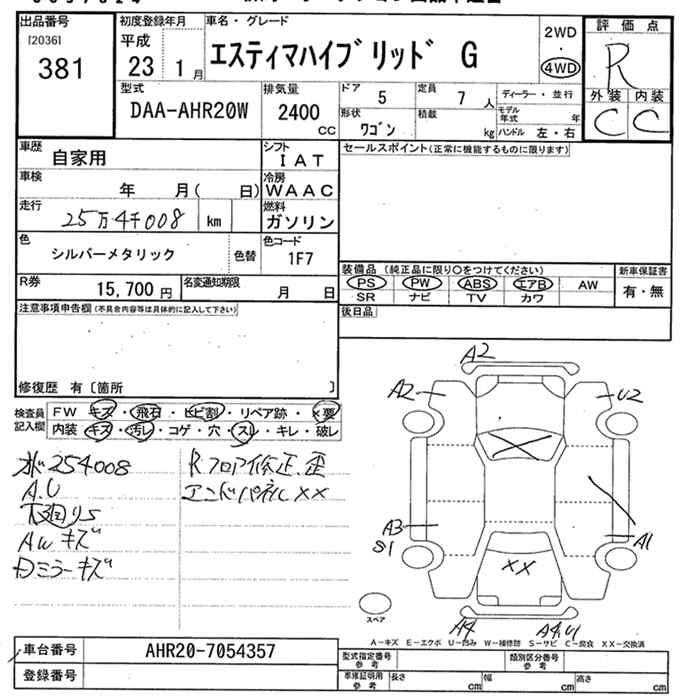 出品番号
[2036]
381
初度登録年月
平成
23 1月
車名・グレード
エスティマハイブリッド G
2WD
・
4WD
評価点
R
外装 内装
C C
型式
DAA-AHR20W
排気量
2400
cc
ドア 5
定員 7 人
ディーラー・並行
形状
ワゴン
積載
kg
モデル年式 年
ハンドル 左・右
車歴
自家用
シフト
IAT
セールスポイント(正常に機能するものに限ります)
車検
年 月( 日)
冷房
WAAC
走行
25万4千008 km
燃料
ガソリン
色
シルバーメタリック
色替
色コード
1F7
R券
15,700 円
名変通知期限
月 日
装備品(純正品に限り○をつけてください)
PS PW ABS エアB AW
SR ナビ TV カワ
新車保証書
有・無
注意事項申告欄(不具合内容等は具体的に記入して下さい)
後日品
修復歴 有〔箇所 〕
検査員
記入欄
FW キズ・飛石・ヒビ割・リペア跡・×要
内装 キズ・汚レ・コゲ・穴・スレ・キレ・破レ
254008
A.U
下廻りS
AWキズ
Dミラーキズ
Rフロア修正、歪
エンドパネルXX
A2
A2
U2
A3
S1
A1
XX
A4
A4.U
スペア
A-キズ E-エクボ U-凹み W-補修跡 S-サビ C-腐食 XX-交換済
車台番号
AHR20-7054357
登録番号
型式指定番号
参考
類別区分番号
参考
車庫証明用
参考
長さ cm
幅 cm
高さ cm